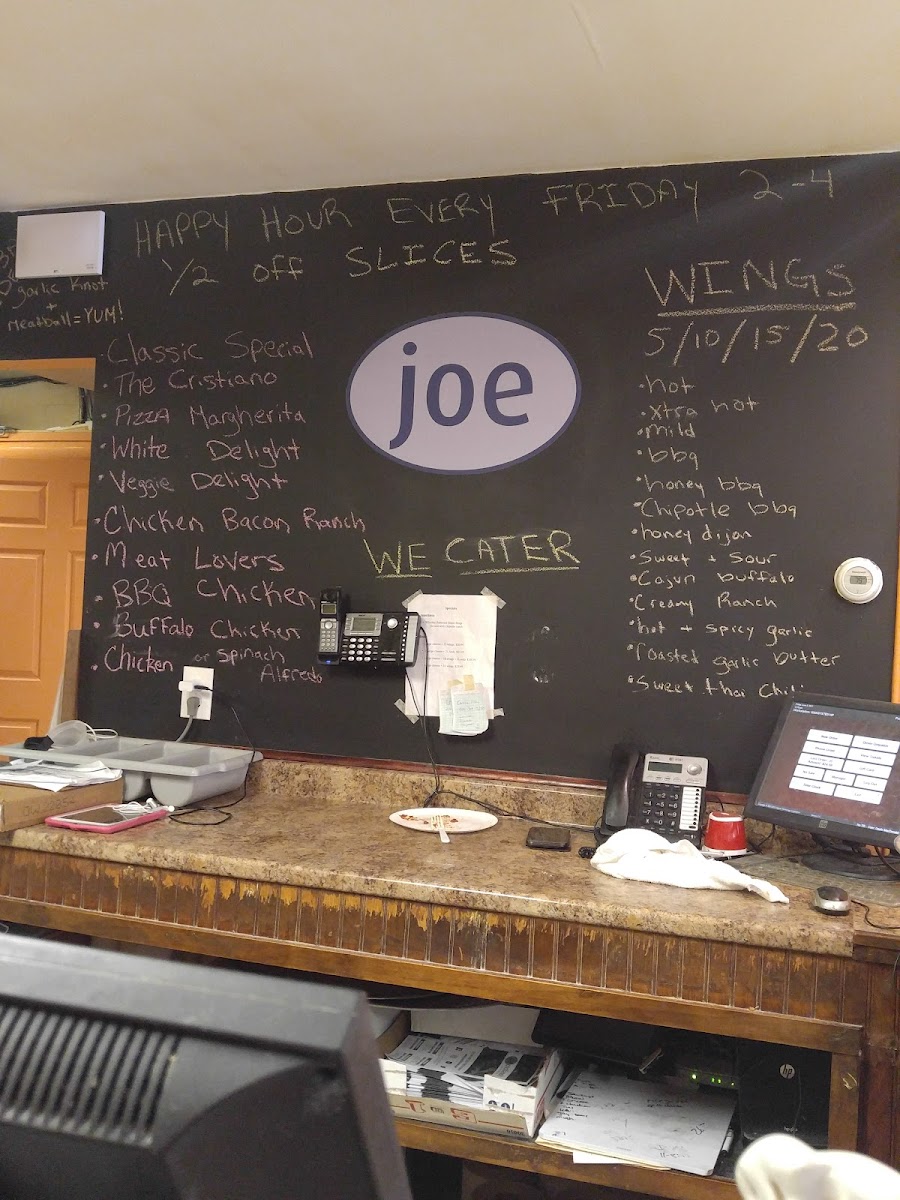 HAPPY HOUR EVERY FRIDAY 2-4
1/2 off SLICES
garlic Knot
+
Meatball = YUM!
• Classic Special
• The Cristiano
• PIZZA Margherita
• White Delight
• Veggie Delight
• Chicken Bacon Ranch
• Meat Lovers
• BBQ Chicken
• Buffalo Chicken
• Chicken or Spinach
Alfredo
joe
WE CATER
WINGS
5/10/15/20
• hot
• Xtra hot
• Mild
• bbq
• honey bbq
• Chipotle bbq
• honey dijon
• Sweet + Sour
• Cajun buffalo
• Creamy Ranch
• hot + spicy garlic
• roasted garlic butter
• Sweet thai Chili
hp